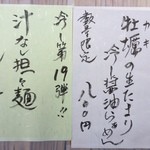 数量限定
カキ
牡蠣の生たまり
冷し醤油らぁめん
八〇〇円
冷し第19弾!!
汁なし担々麺